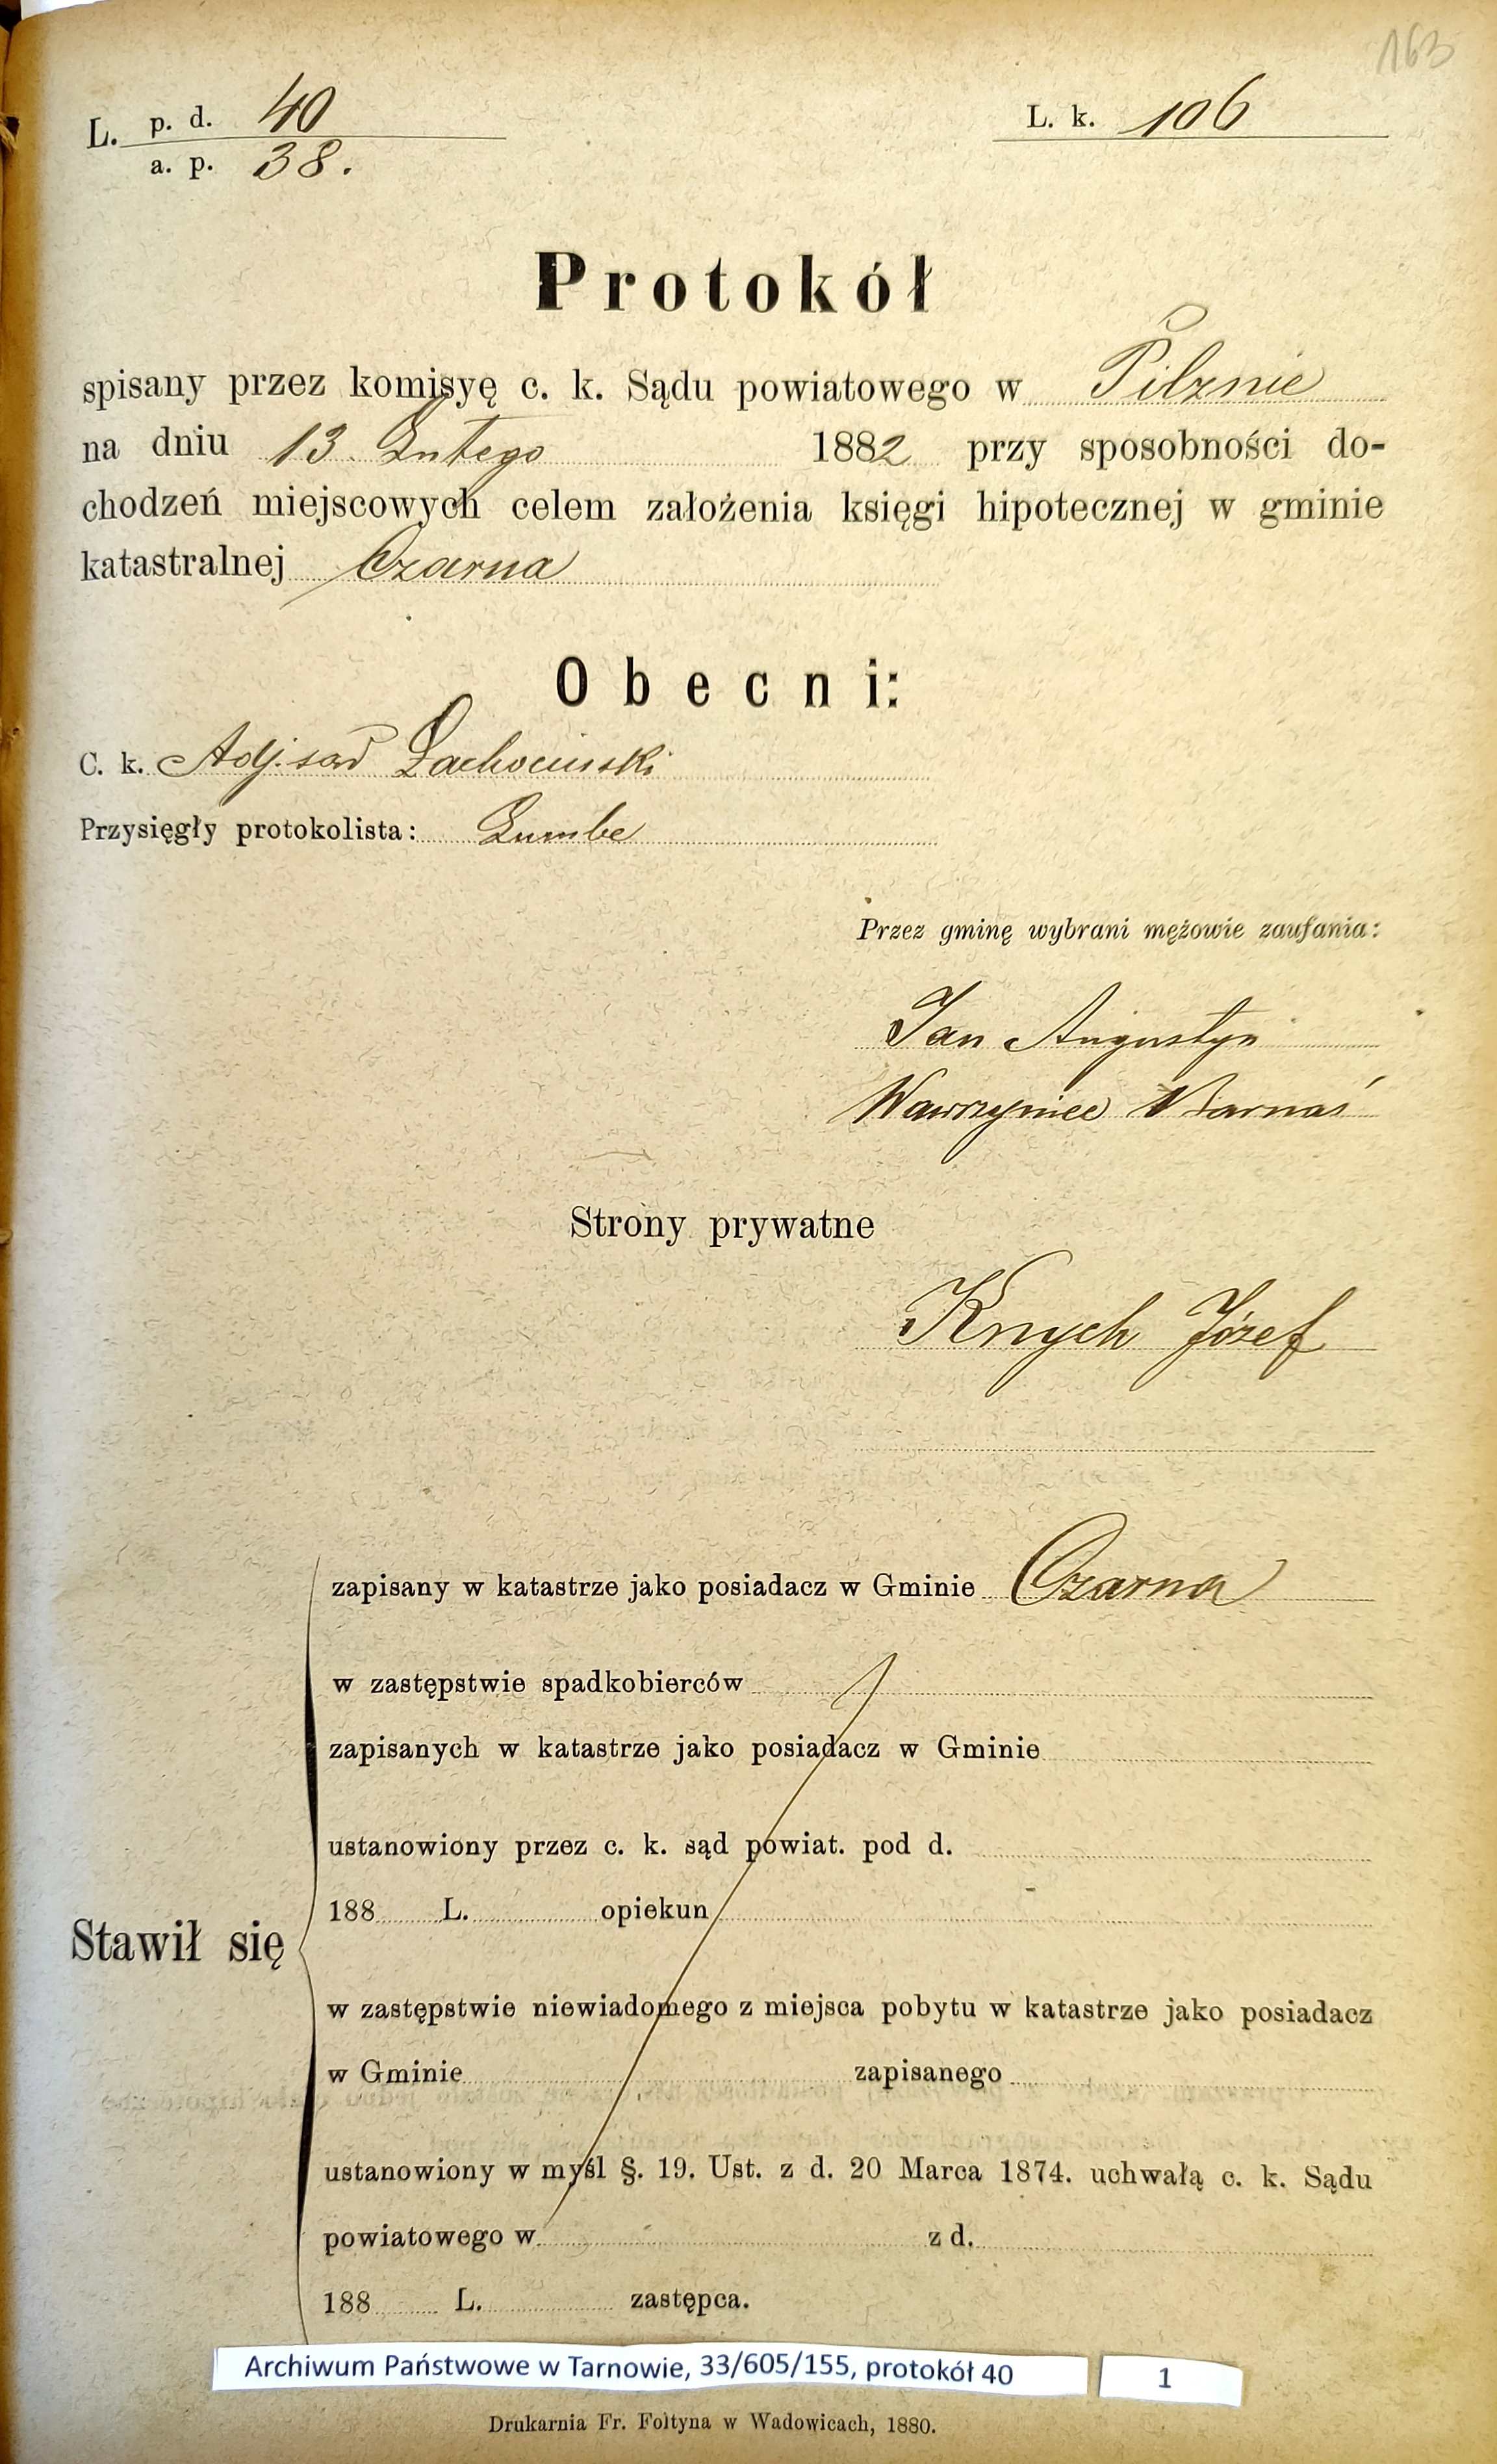 163
L. p. d. 40
a. p. 38.
L. k. 106
Protokół
spisany przez komisyę c. k. Sądu powiatowego w Pilznie
na dniu 13. Lutego 1882 przy sposobności do-
chodzeń miejscowych celem założenia księgi hipotecznej w gminie
katastralnej Czarna
Obecni:
C. k. Adj. sąd Lachocinski
Przysięgły protokolista: Lumbe
Przez gminę wybrani mężowie zaufania:
Jan Augustyn
Wawrzyniec Warnaś
Strony prywatne
Knych Józef
zapisany w katastrze jako posiadacz w Gminie Czarna
w zastępstwie spadkobierców
zapisanych w katastrze jako posiadacz w Gminie
ustanowiony przez c. k. sąd powiat. pod d.
188 L. opiekun
Stawił się
w zastępstwie niewiadomego z miejsca pobytu w katastrze jako posiadacz
w Gminie zapisanego
ustanowiony w myśl §. 19. Ust. z d. 20 Marca 1874. uchwałą c. k. Sądu
powiatowego w z d.
188 L. zastępca.
Archiwum Państwowe w Tarnowie, 33/605/155, protokół 40 1
Drukarnia Fr. Foltyna w Wadowicach, 1880.